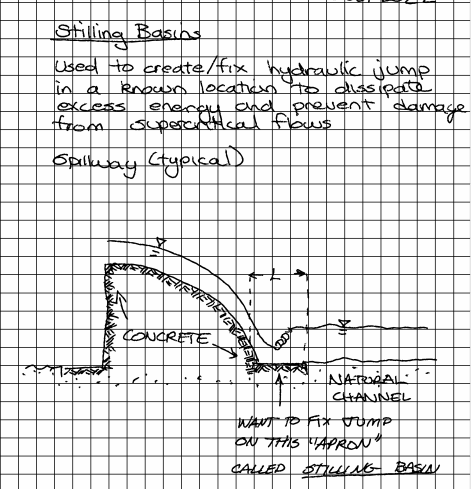 Stilling Basins
Used to create/fix hydraulic jump
in a known location to dissipate
excess energy and prevent damage
from supercritical flows
Spillway (typical)
L
CONCRETE
NATURAL
CHANNEL
WANT TO FIX JUMP
ON THIS "APRON"
CALLED STILLING BASIN